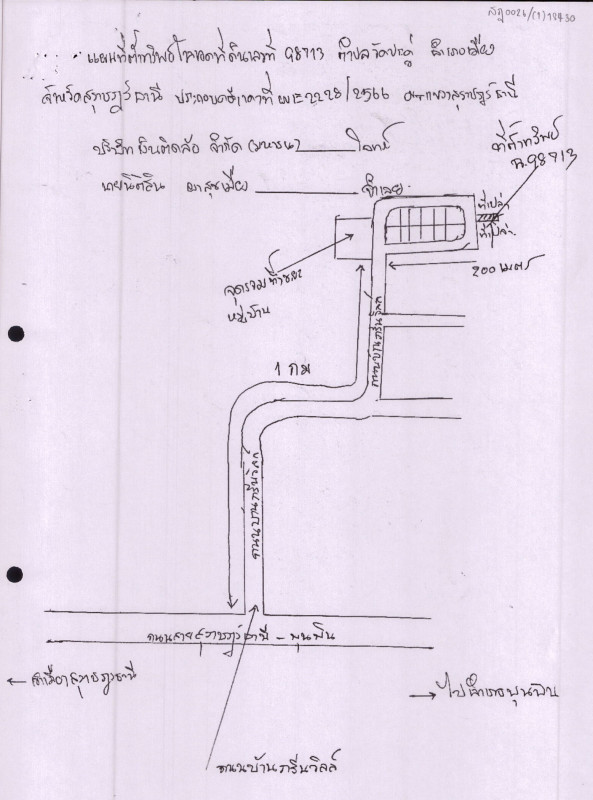 สฎ0026/(1)12430
แผนที่ตั้งทรัพย์โฉนดที่ดินเลขที่ 98713 ตำบลวัดประดู่ อำเภอเมือง
จังหวัดสุราษฎร์ธานี ประกอบคดีแดงที่ ผบE2228/2566 ศาลแขวงสุราษฎร์ธานี
บริษัท เงินติดล้อ จำกัด (มหาชน) โจทก์
นาย จำเลย
ที่ตั้งทรัพย์
ฉ.98713
ที่เปล่า
ที่เปล่า
200 เมตร
จุดรวมทิ้งขยะ
หมู่บ้าน
1 กม
ถนนบ้านกรีนวิลล์
ถนนบ้านกรีนวิลล์
ถนนสายสุราษฎร์ธานี - พุนพิน
← เมืองสุราษฎร์ธานี
→ ไปอำเภอพุนพิน
ถนนบ้านกรีนวิลล์